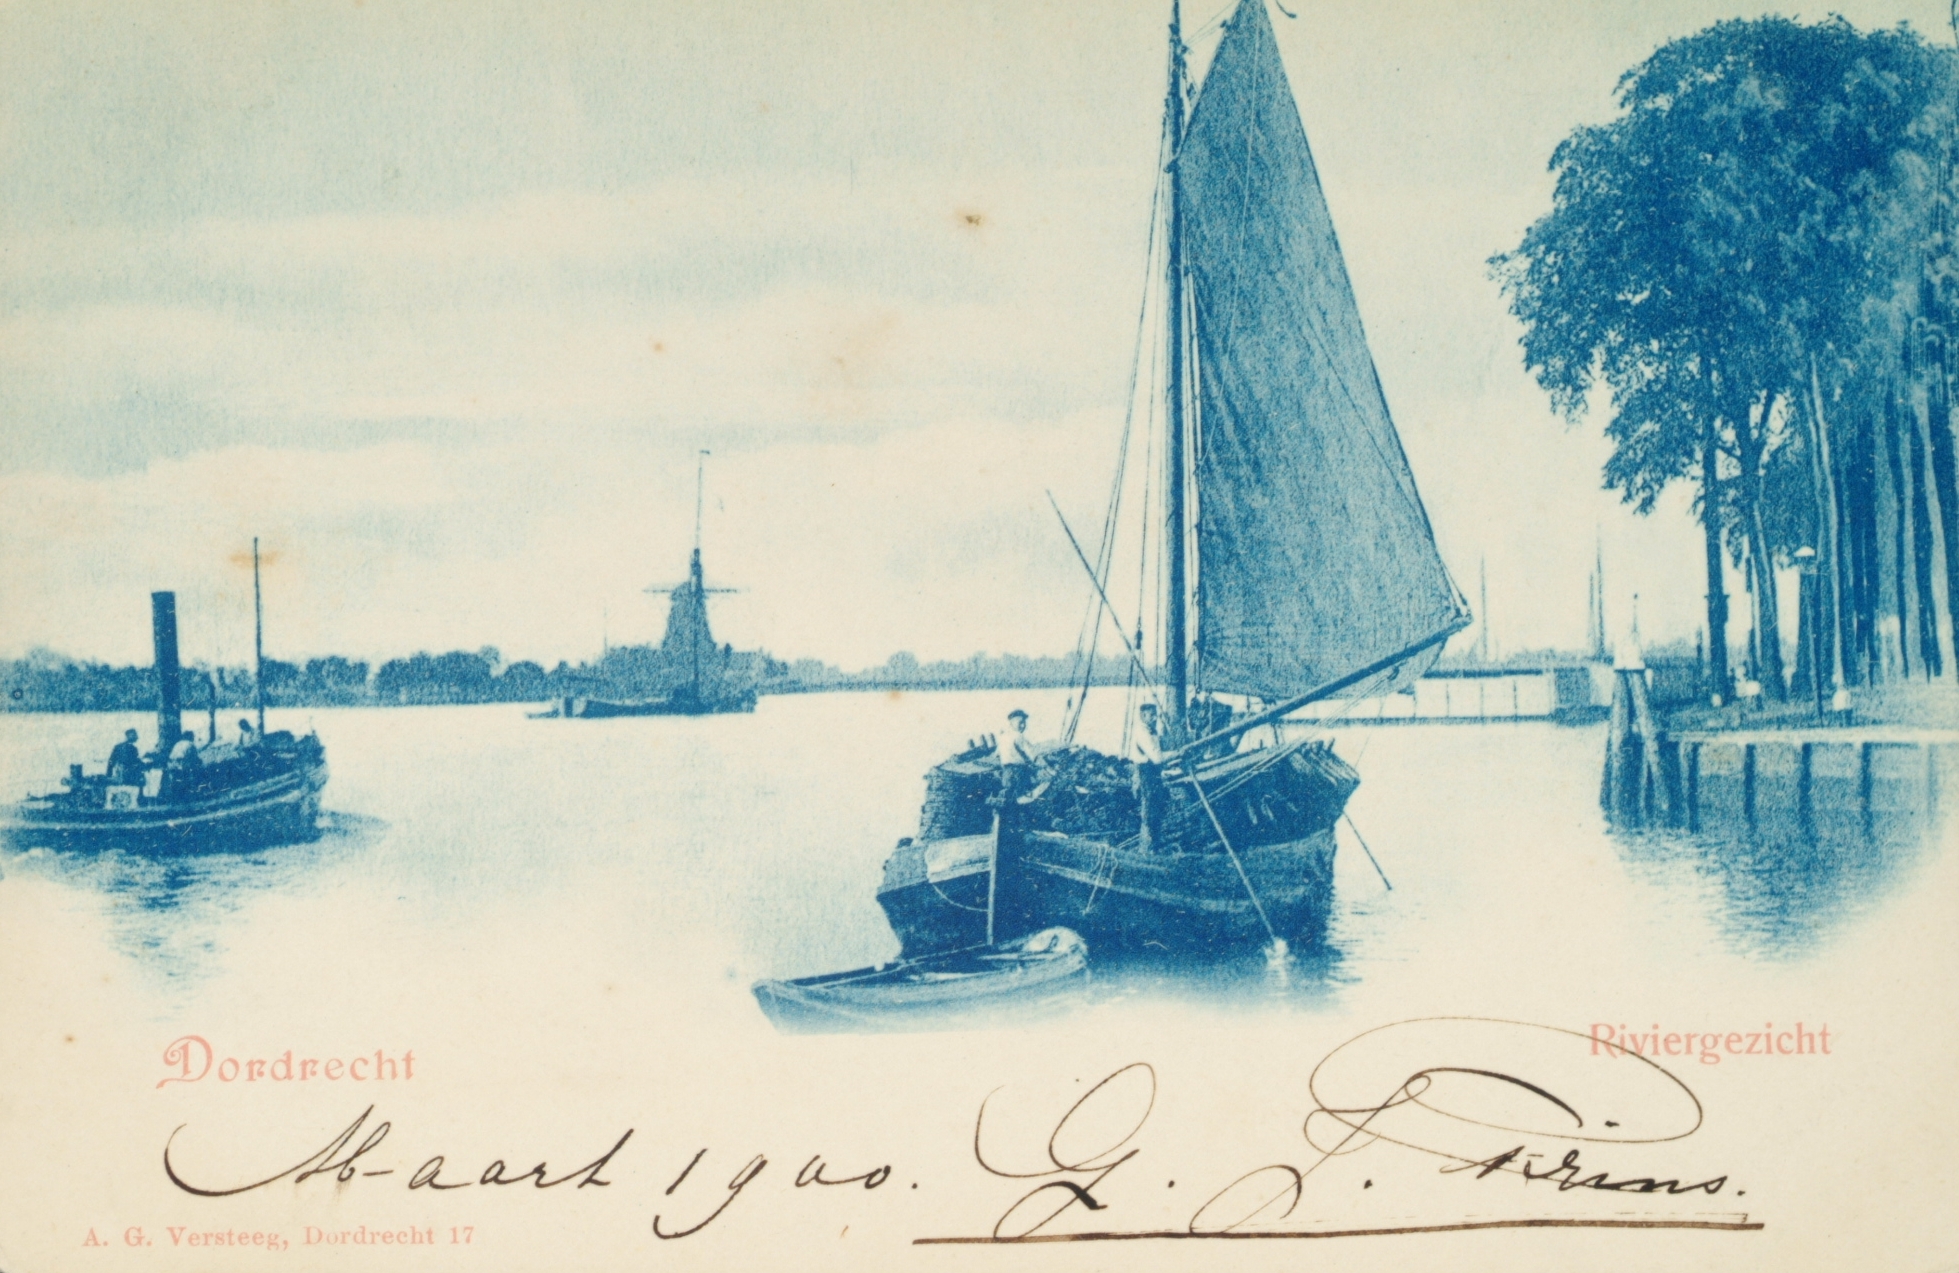 Dordrecht
Riviergezicht
Maart 1900. G. J. Prins.
A. G. Versteeg, Dordrecht 17